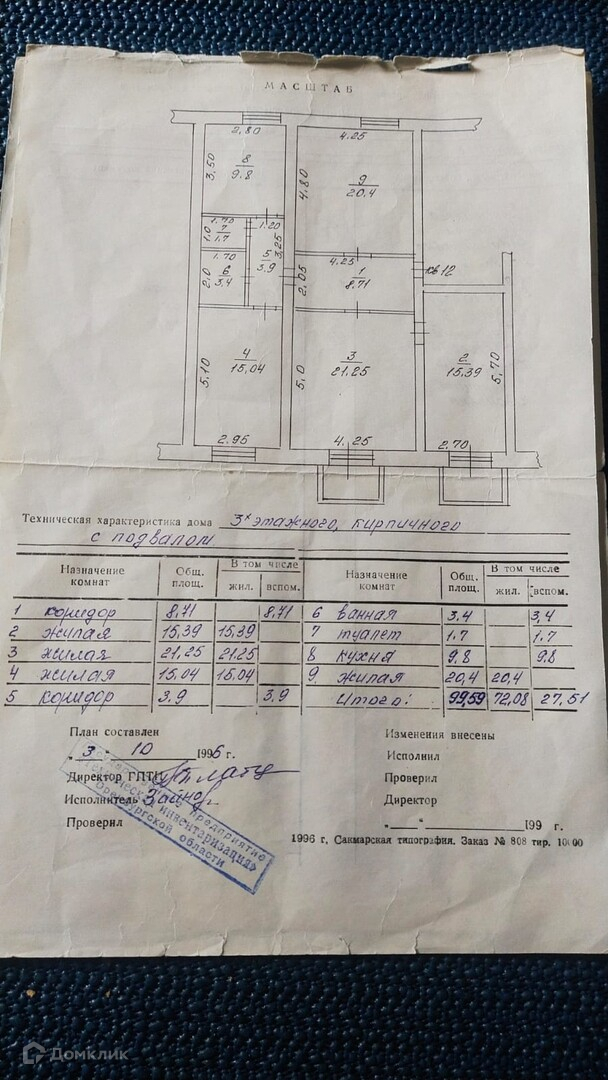 МАСШТАБ
2,80
4.25
3,50
8
9.8
4,80
9
20.4
1.70
1.20
1,0
7
1.7
3,25
1.70
5
3.9
4.25
2,0
6
3.4
2,05
1
8.71
кв 12
5,10
4
15.04
5,0
3
21.25
2
15.39
5,70
2.95
4.25
2.70
Техническая характеристика дома 3х этажного, кирпичного
с подвалом
Назначение комнат Общ. площ. В том числе жил. вспом. Назначение комнат Общ. площ. В том числе жил. вспом.
1 коридор 8,71 8,71 6 ванная 3.4 3,4
2 жилая 15,39 15,39 7 туалет 1.7 1.7
3 жилая 21,25 21.25 8 кухня 9.8 9.8
4 жилая 15.04 15.04 9 жилая 20.4 20.4
5 коридор 3.9 3.9 Итого: 99,59 72,08 27,51
План составлен
Изменения внесены
„ 3 " 10 1996 г.
Исполнил
Директор ГПТИ
Проверил
Исполнитель
Директор
Проверил
„ " 199 г.
предприятие
технической инвентаризации»
Оренбургской области
1996 г, Сакмарская типография. Заказ № 808 тир. 10000
Домклик